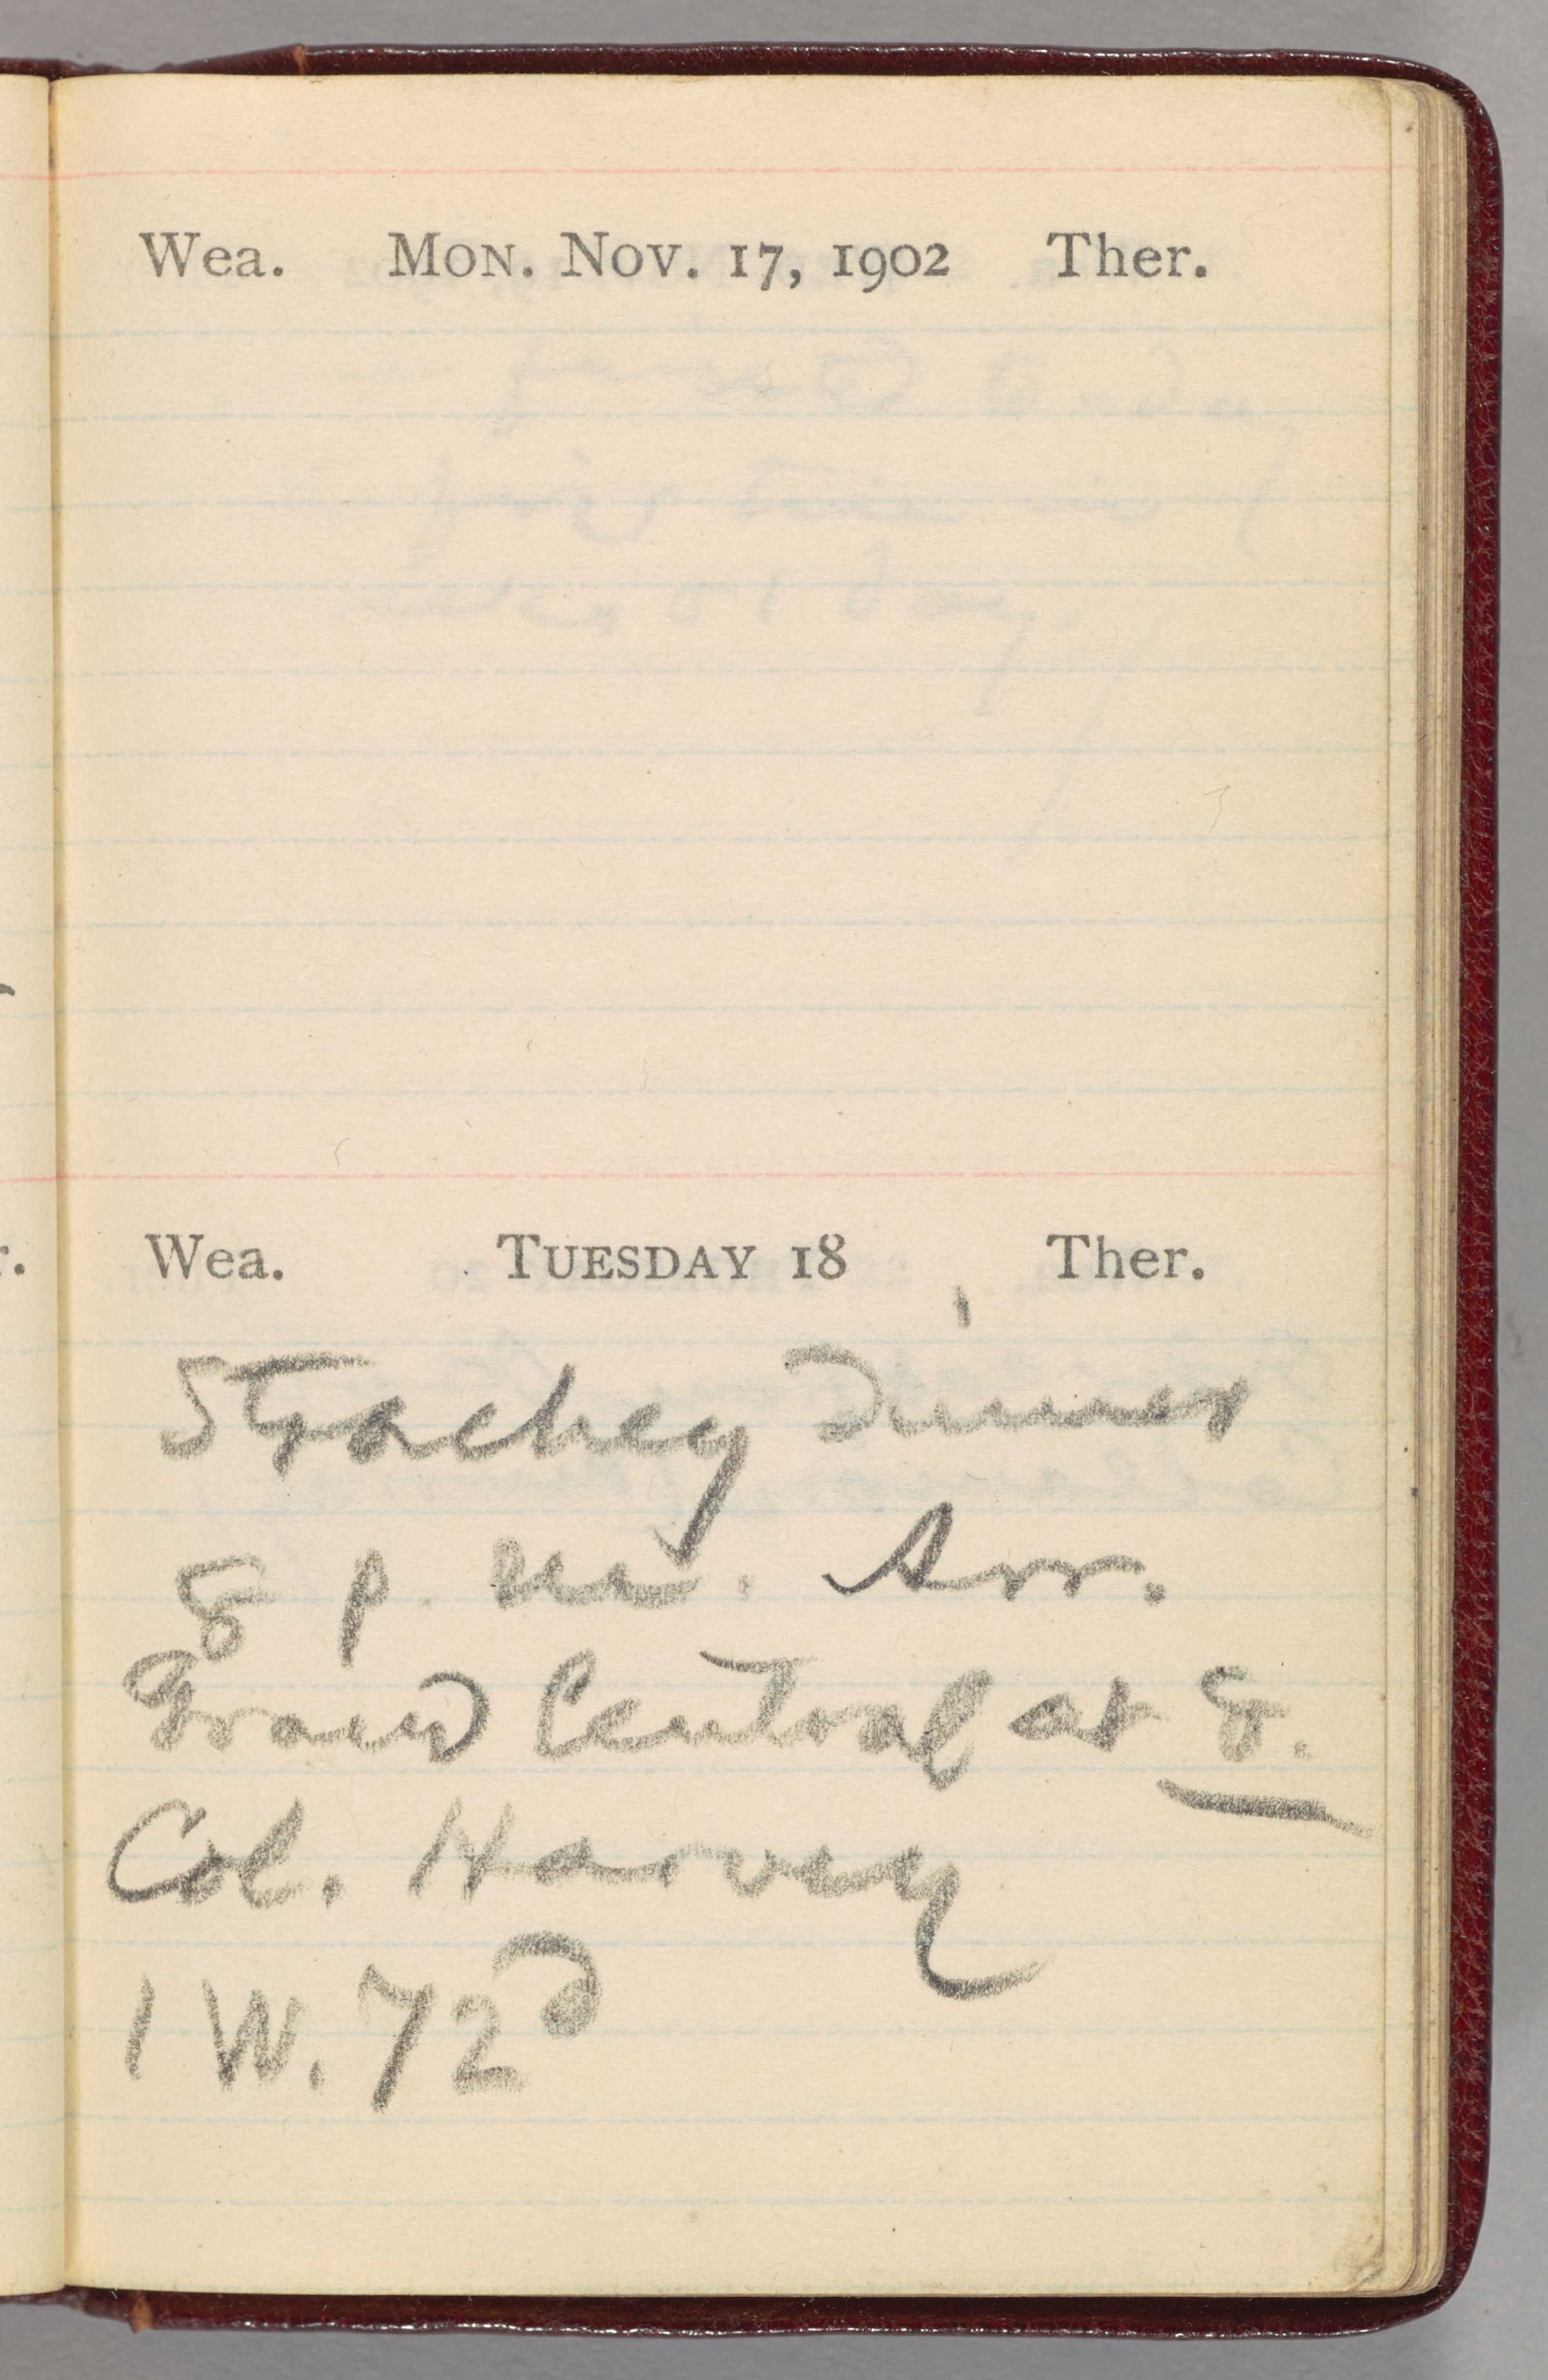 Wea. Mon. Nov. 17, 1902 Ther.
Wea. Tuesday 18 Ther.
Strachey dinner
8 p. m. Arr.
Grand Central at 8.
Col. Harvey
1 W. 72d